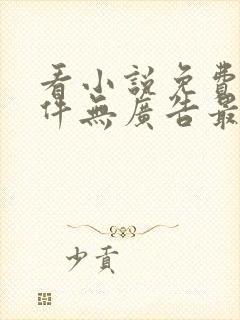 看小說免費
件無廣告最
少貢